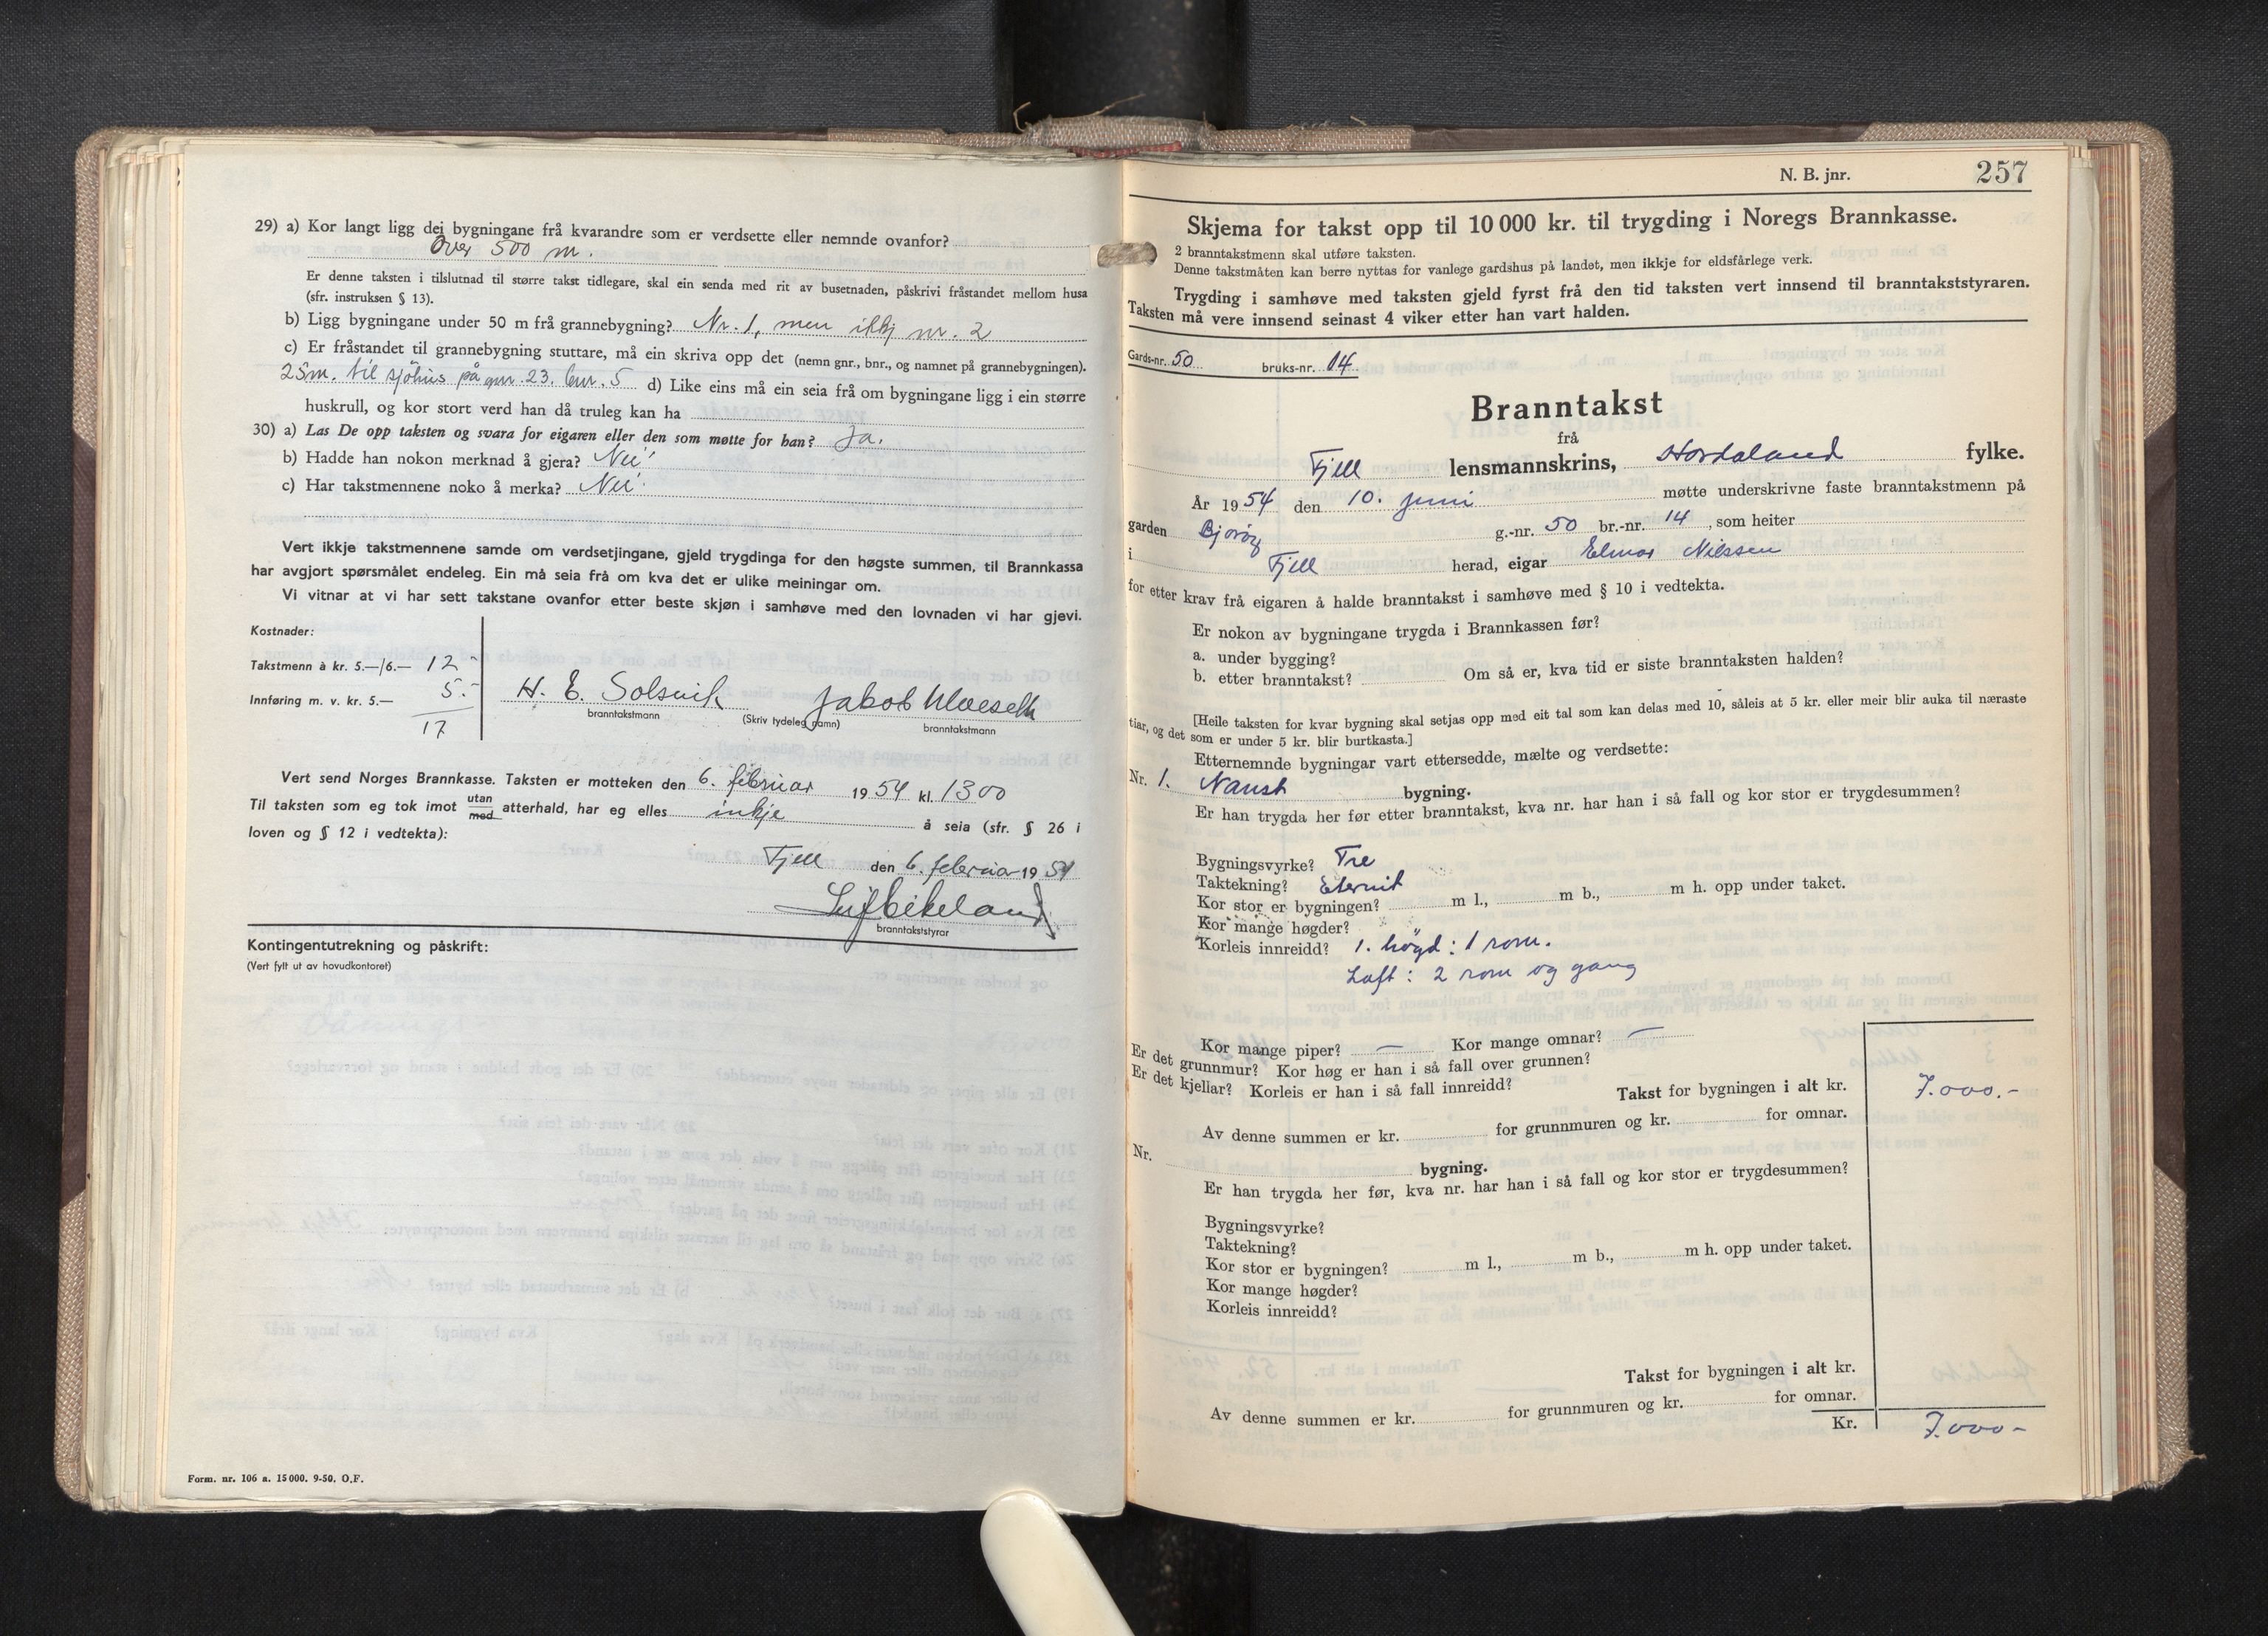 29) a) Kor langt ligg dei bygningane frå kvarandre som er verdsette eller nemnde ovanfor?
Over 500 m.
Er denne taksten i tilslutnad til større takst tidlegare, skal ein senda med rit av busetnaden, påskrivi fråstandet mellom husa
(sfr. instruksen § 13).
b) Ligg bygningane under 50 m frå grannebygning? Nr. 1, men ikkj nr. 2
c) Er fråstandet til grannebygning stuttare, må ein skriva opp det (nemn gnr., bnr., og namnet på grannebygningen).
25m. til sjöhus på gnr. 23. bnr. 5 d) Like eins må ein seia frå om bygningane ligg i ein større
huskrull, og kor stort verd han då truleg kan ha
30) a) Las De opp taksten og svara for eigaren eller den som møtte for han? Ja.
b) Hadde han nokon merknad å gjera? Nei
c) Har takstmennene noko å merka? Nei
Vert ikkje takstmennene samde om verdsetjingane, gjeld trygdinga for den høgste summen, til Brannkassa
har avgjort spørsmålet endeleg. Ein må seia frå om kva det er ulike meiningar om.
Vi vitnar at vi har sett takstane ovanfor etter beste skjøn i samhøve med den lovnaden vi har gjevi.
Kostnader:
Takstmenn à kr. 5.—/6.— 12-
Innføring m. v. kr. 5.— 5.-
17
H. E. Solsvik
branntakstmann
(Skriv tydeleg namn)
Jakob
branntakstmann
Vert send Norges Brannkasse. Taksten er motteken den 6. februar 1954 kl. 1300
Til taksten som eg tok imot utan med atterhald, har eg elles inkje å seia (sfr. § 26 i
loven og § 12 i vedtekta):
Fjell den 6. februar 1954
branntakststyrar
Kontingentutrekning og påskrift:
(Vert fylt ut av hovudkontoret)
Form. nr. 106 a. 15000. 9-50. O.F.
N. B. jnr. 257
Skjema for takst opp til 10 000 kr. til trygding i Noregs Brannkasse.
2 branntakstmenn skal utføre taksten.
Denne takstmåten kan berre nyttas for vanlege gardshus på landet, men ikkje for eldsfårlege verk.
Trygding i samhøve med taksten gjeld fyrst frå den tid taksten vert innsend til branntakststyraren.
Taksten må vere innsend seinast 4 viker etter han vart halden.
Gards-nr. 50 bruks-nr. 14.
Branntakst
frå
Fjell lensmannskrins, Hordaland fylke.
År 1954 den 10. juni møtte underskrivne faste branntakstmenn på
garden Bjoröy g.-nr. 50 br.-nr. 14, som heiter
i Fjell herad, eigar Elmar Nilssen
for etter krav frå eigaren å halde branntakst i samhøve med § 10 i vedtekta.
Er nokon av bygningane trygda i Brannkassen før?
a. under bygging?
b. etter branntakst? Om så er, kva tid er siste branntaksten halden?
[Heile taksten for kvar bygning skal setjas opp med eit tal som kan delas med 10, såleis at 5 kr. eller meir blir auka til næraste
tiar, og det som er under 5 kr. blir burtkasta.]
Etternemnde bygningar vart ettersedde, mælte og verdsette:
Nr. 1. Naust bygning.
Er han trygda her før etter branntakst, kva nr. har han i så fall og kor stor er trygdesummen?
Bygningsvyrke? Tre
Taktekning? Eternit
Kor stor er bygningen? m l., m b., m h. opp under taket.
Kor mange høgder?
Korleis innreidd? 1. högd: 1 rom.
Loft: 2 rom og gang
Kor mange piper? — Kor mange omnar? —
Er det grunnmur? Kor høg er han i så fall over grunnen?
Er det kjellar? Korleis er han i så fall innreidd?
Takst for bygningen i alt kr. 7.000.-
Av denne summen er kr. for grunnmuren og kr. for omnar.
Nr. bygning.
Er han trygda her før, kva nr. har han i så fall og kor stor er trygdesummen?
Bygningsvyrke?
Taktekning?
Kor stor er bygningen? m l., m b., m h. opp under taket.
Kor mange høgder?
Korleis innreidd?
Takst for bygningen i alt kr.
Av denne summen er kr. for grunnmuren og kr. for omnar.
Kr. 7.000-